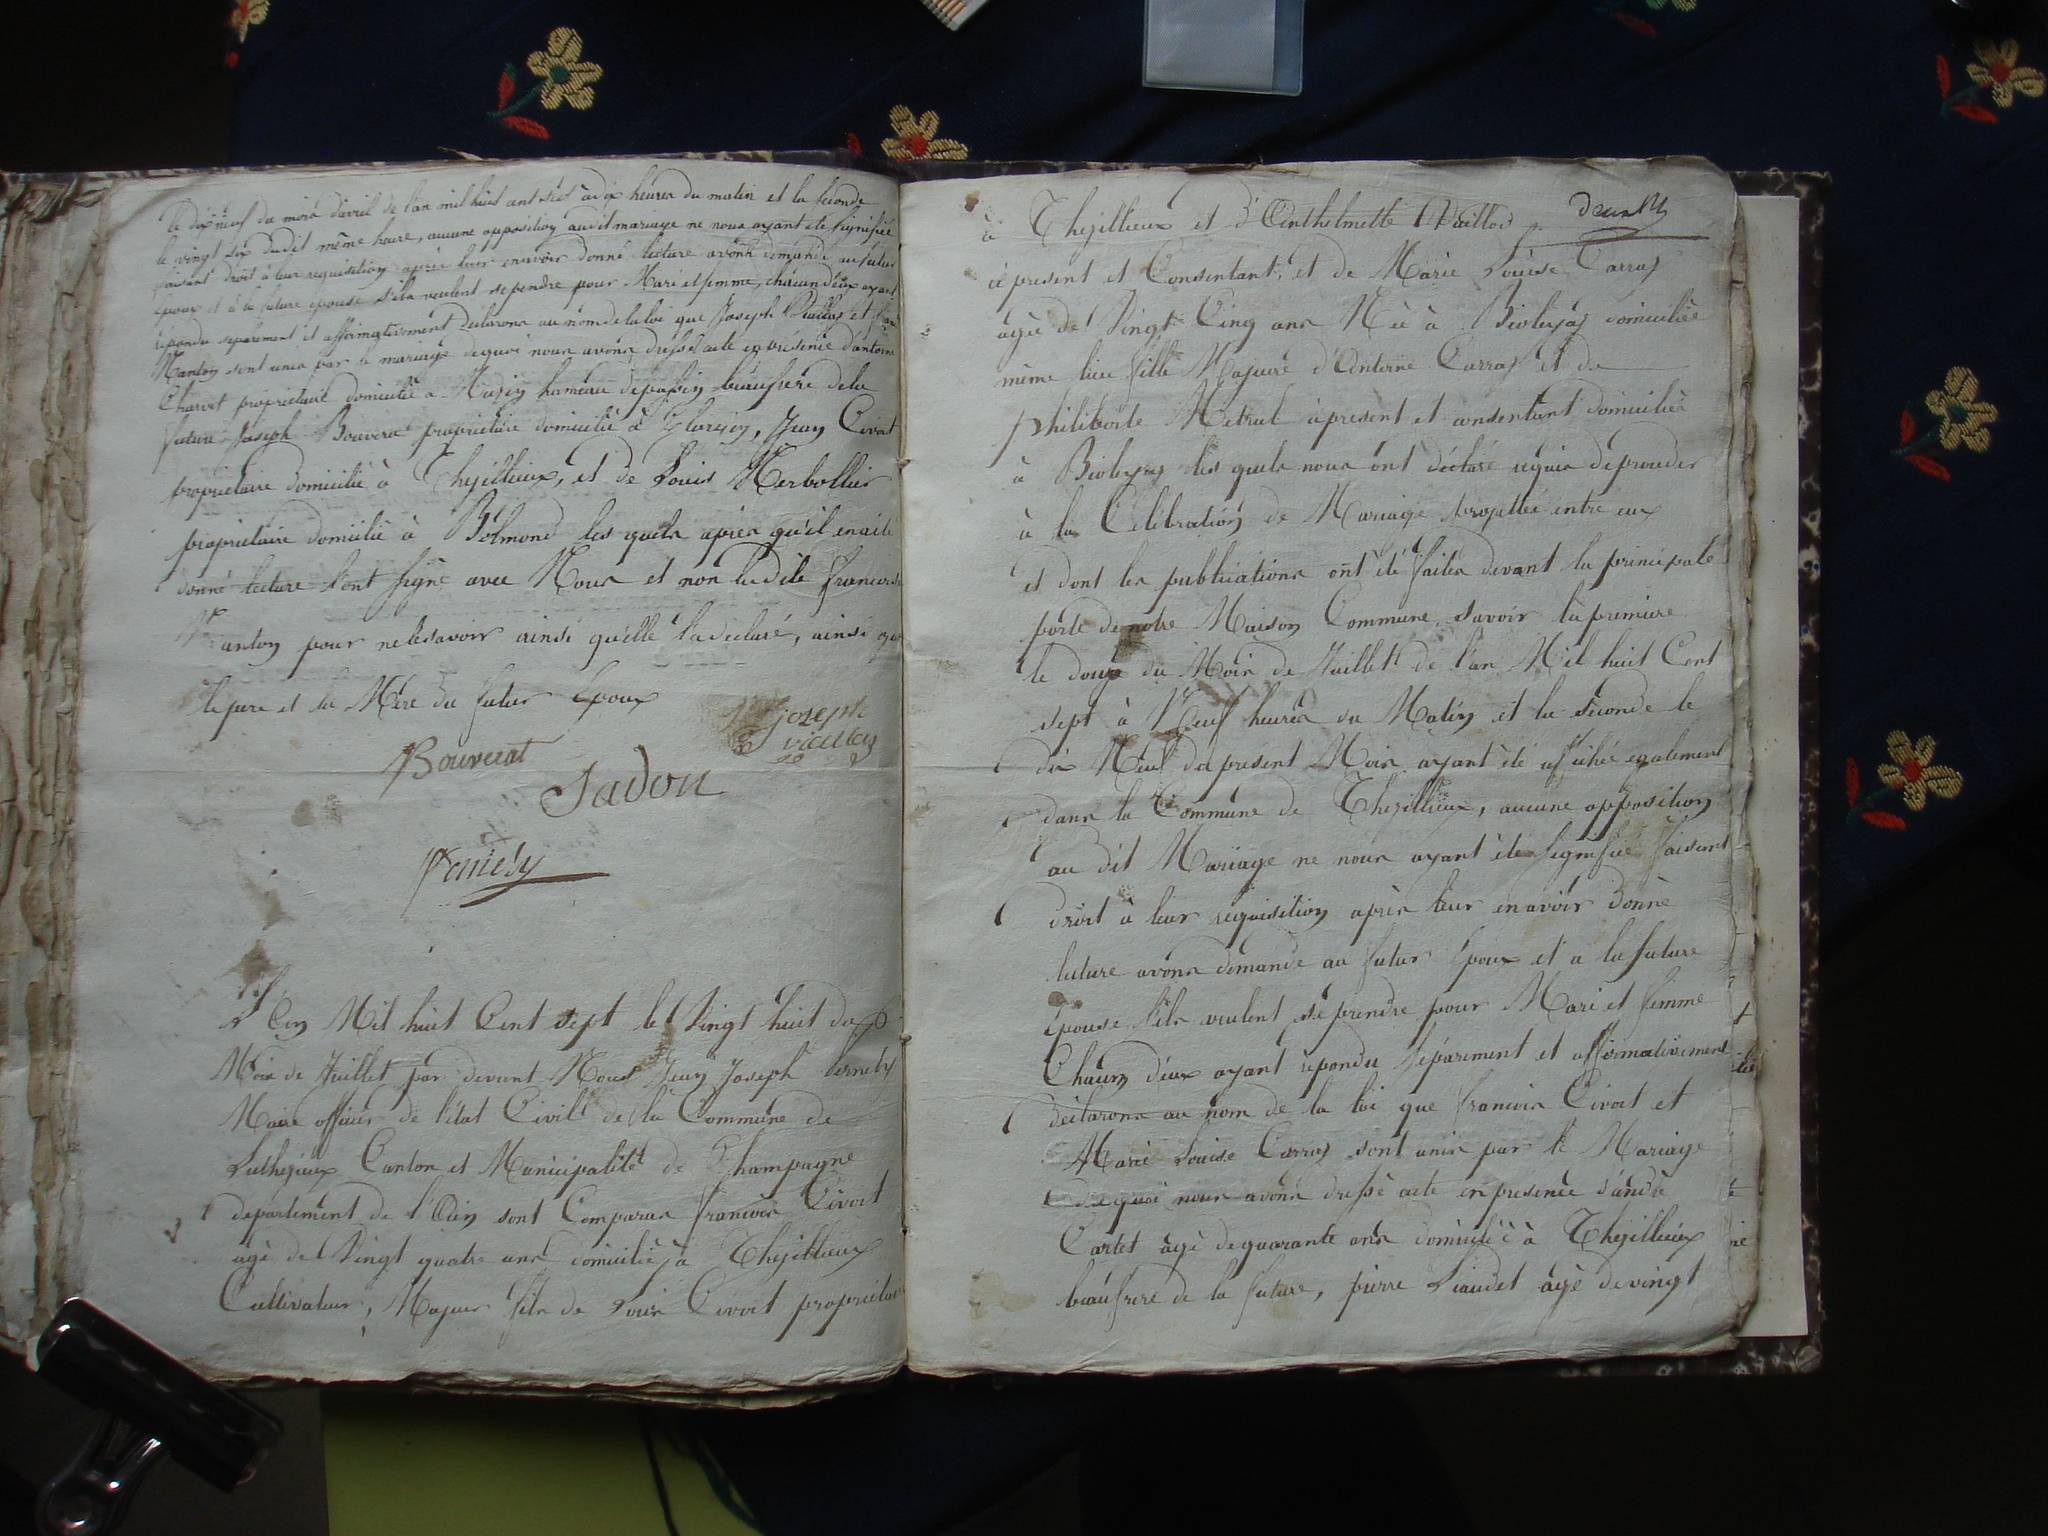 le dix neuf du mois d'avril de l'an mil huit cent sept à dix heures du matin et la seconde
le vingt six dudit même heure, aucune opposition audit mariage ne nous ayant été signifiée
faisant droit à leur requisition après leur en avoir donné lecture avons demandé au futur
Epoux et à la future epouse s'ils veulent se prendre pour Mari et femme, chacun d'eux ayant
répondu separément et affirmativement Declarons au nom de la loi que Joseph et
Nanton sont unis par le mariage de quoi nous avons dressé acte en présence d'antoine
Charvet propriétaire domicilié à hameau beaufrere de la
future Joseph Bouverat propriétaire domicilié à Jean Civoct
propriétaire domicilié à Thezillieux, et de Louis Marbollier
propriétaire domicilié à les quels après qu'il en a été
donné lecture l'ont signé avec Nous et non la dite francoise
Nanton pour ne le savoir ainsi qu'elle l'a déclaré, ainsi que
le pere et la Mère du futur Epoux
joseph
Bouverat
Jadon
L'an Mil huit Cent sept le Vingt huit du
Mois de Juillet par devant Nous Jean Joseph
Maire officier de l'état Civil de la Commune de
Luthezieux Canton et Municipalité de Champagne
departement de l'Ain sont Comparus francois Civoct
agé de Vingt quatre ans domicilié à Thezillieux
Cultivateur, Majeur fils de Louis Civoct propriétaire
à Thezillieux et d'Anthelmette
à present et Consentant, et de Marie Louise Carraz
agée de Vingt Cinq ans Née à Bioleyaz domiciliée
même lieu fille Majeure d'Antoine Carraz et de
philiberte Metral à present et consentant domicilié
à Bioleyaz les quels nous ont déclaré requis de proceder
à la Célébration de Mariage projettée entre eux
et dont les publications ont été faites devant la principale
porte de notre Maison Commune, savoir la premiere
le douze du Mois de Juillet de l'an Mil huit Cent
sept à Neuf heures du Matin et la séconde le
dix Neuf du présent Mois ayant été affiché egalement
dans la Commune de Thezillieux, aucune opposition
au dit Mariage ne nous ayant été signifiée faisant
droit à leur requisition après leur en avoir donné
lecture avons demandé au futur Epoux et a la future
épouse s'ils veulent se prendre pour Mari et femme
Chacun d'eux ayant répondu séparement et affirmativement
déclarons au nom de la loi que francois Civoct et
Marie Louise Carraz sont unis par le Mariage
de quoi nous avons dressé acte en présence d'andré
Cartet agé de quarante ans domicilié à Thezillieux
beaufrere de la future, pierre Liaudet âgé de vingt